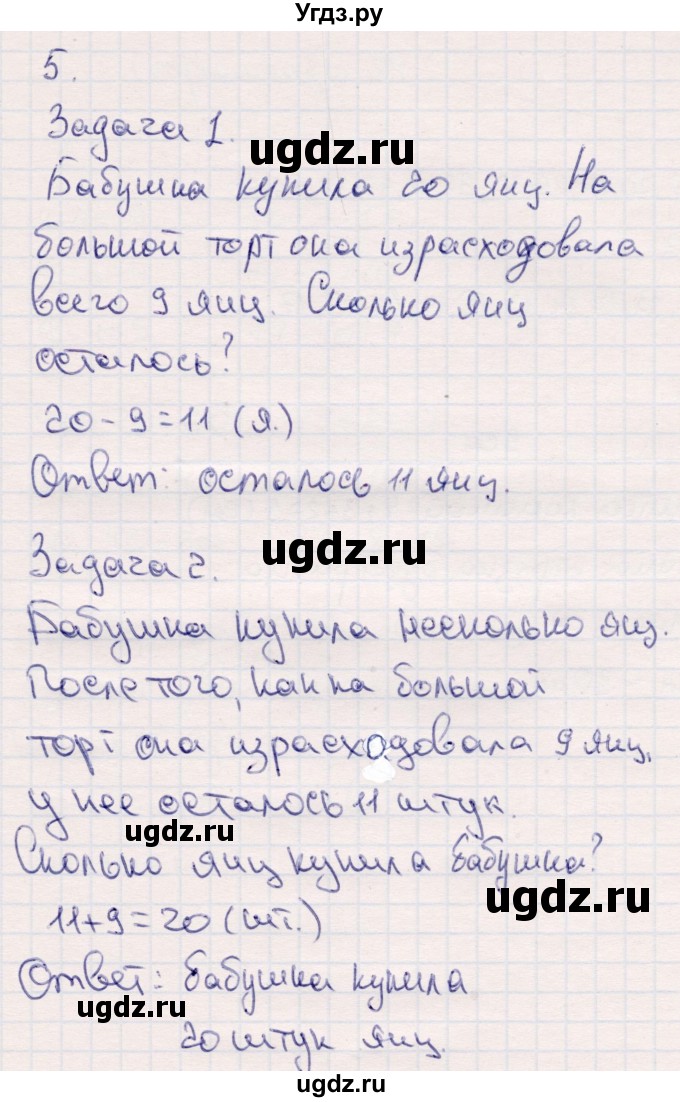 Угдз.ру
5.
Задача 1.
ugdz.ru
Бабушка купила 20 яиц. На
большой торт она израсходовала
всего 9 яиц. Сколько яиц
осталось?
20 - 9 = 11 (я.)
Ответ: осталось 11 яиц.
ugdz.ru
Задача 2.
Бабушка купила несколько яиц.
После того, как на большой
торт она израсходовала 9 яиц,
у нее осталось 11 штук.
ugdz.ru
Сколько яиц купила бабушка?
ugdz.ru
11 + 9 = 20 (шт.)
Ответ: бабушка купила
ugdz.ru
20 штук яиц.
ugdz.ru